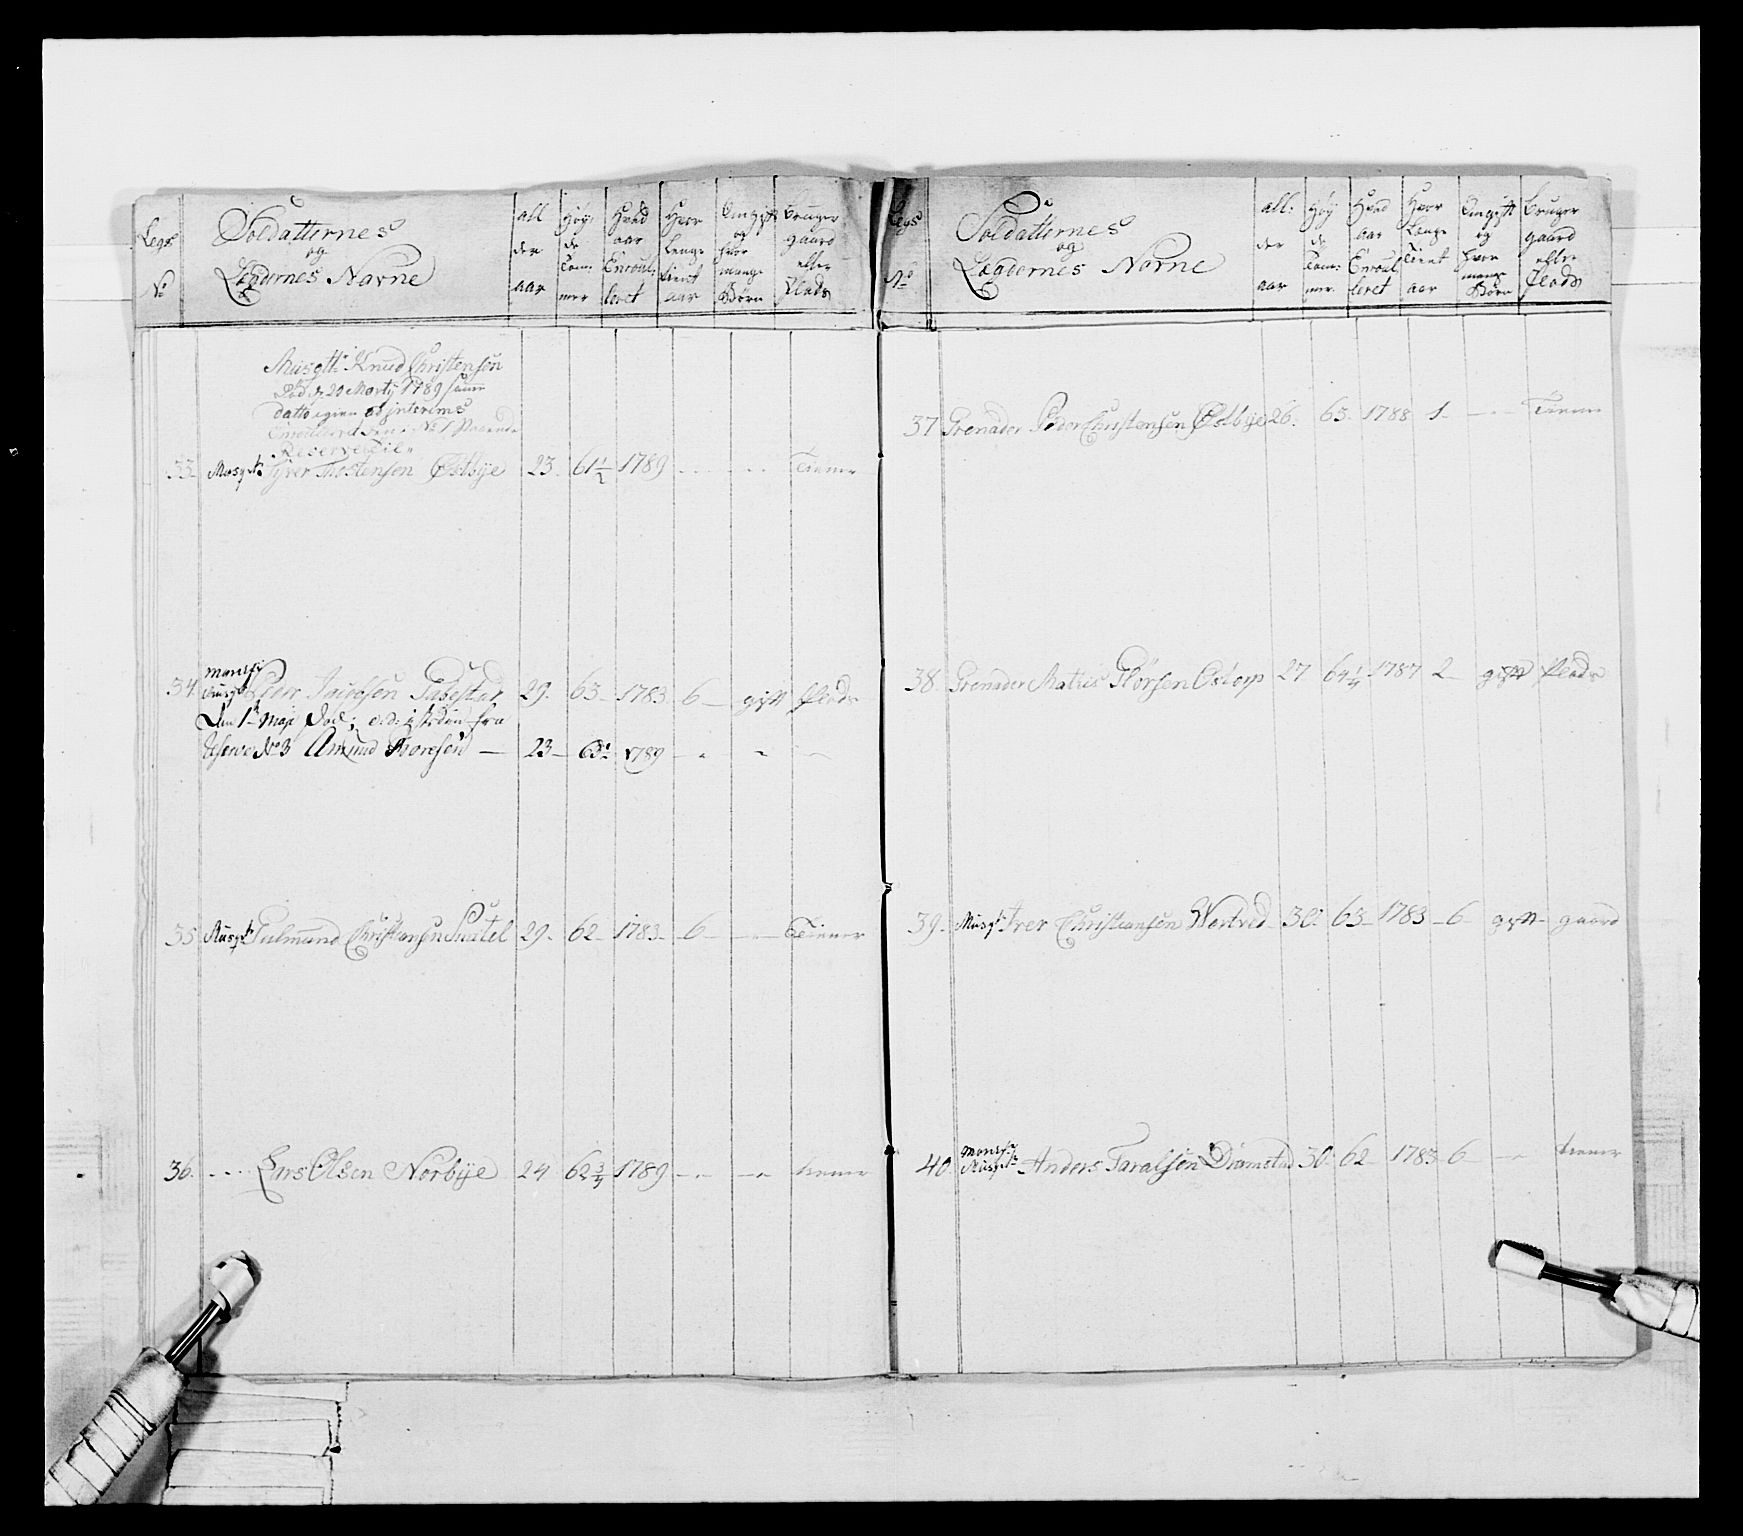 Legs No
Soldatternes og Lægdernes Navne
all der aar
Høy de Tom: mer
Hvad aar Enroul: leret
Hvor Lenge tient aar
Om gift og hvor mange Børn
Bruger gaard eller Plads
Musqtt: Knud Christensen
20 Martij 1789 samme
datto igien ad interims
Enroulleret No 1
Reserve
33. Musqt: Tostensen Østbye 23. 61 1/2 1789 - - Tiener
34. Peder Jacobsen 29. 63 - 1783 6 - gift Plads
Den 1te Maji Død; i steden fra
Reserve No 3 Amund Thoresen - 23 - 63 1789 - - -
35 Musqt: Gulmund Christensen 29. 62 - 1783 - 6 - - Tiener
36. - - - Lars Olsen Norbye 24 62 3/4 1789 - - tiener
Legs No
Soldatternes og Lægdernes Navne
all: der aar
Høy de Tom: mer
Hvad aar Enroul leret
Hvor Lenge Tient aar
Om gift og hvor mange Børn
Bruger gaard eller Plads
37 Grenader Peder Christensen Østbye 26. 63. 1788 1 - - - Tiener
38. Grenader Matis Thörsen 27 64 1/4 1787 2 - gift Plads
39. Musqt: Iver Christiansen Wortved 30. 63 - 1783 - 6 - gift - gaard
40. Musqt: Anders Taralsen 30. 62 1783 6 - - tiener